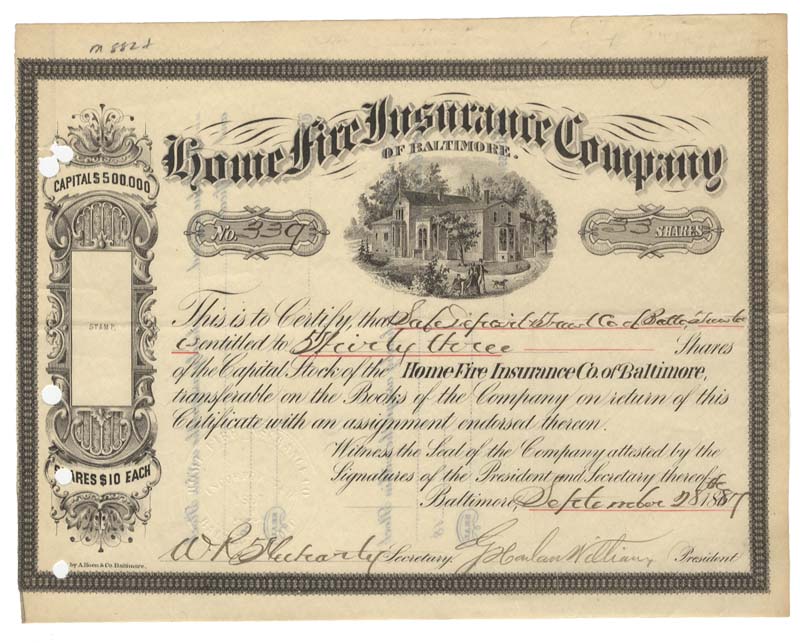 Home Fire Insurance Company
OF BALTIMORE.
CAPITAL $500,000
No. 339
33 SHARES
STAMP.
This is to Certify, that Safe Deposit & Trust Co of Balto, Trustee
is entitled to Thirty three Shares
of the Capital Stock of the Home Fire Insurance Co. of Baltimore,
transferable on the Books of the Company on return of this
Certificate with an assignment endorsed thereon.
Witness the Seal of the Company attested by the
Signatures of the President and Secretary thereof
SHARES $10 EACH
Baltimore, September 28th 1887
Secretary. G Harlan Williams President
by A. Hoen & Co. Baltimore.